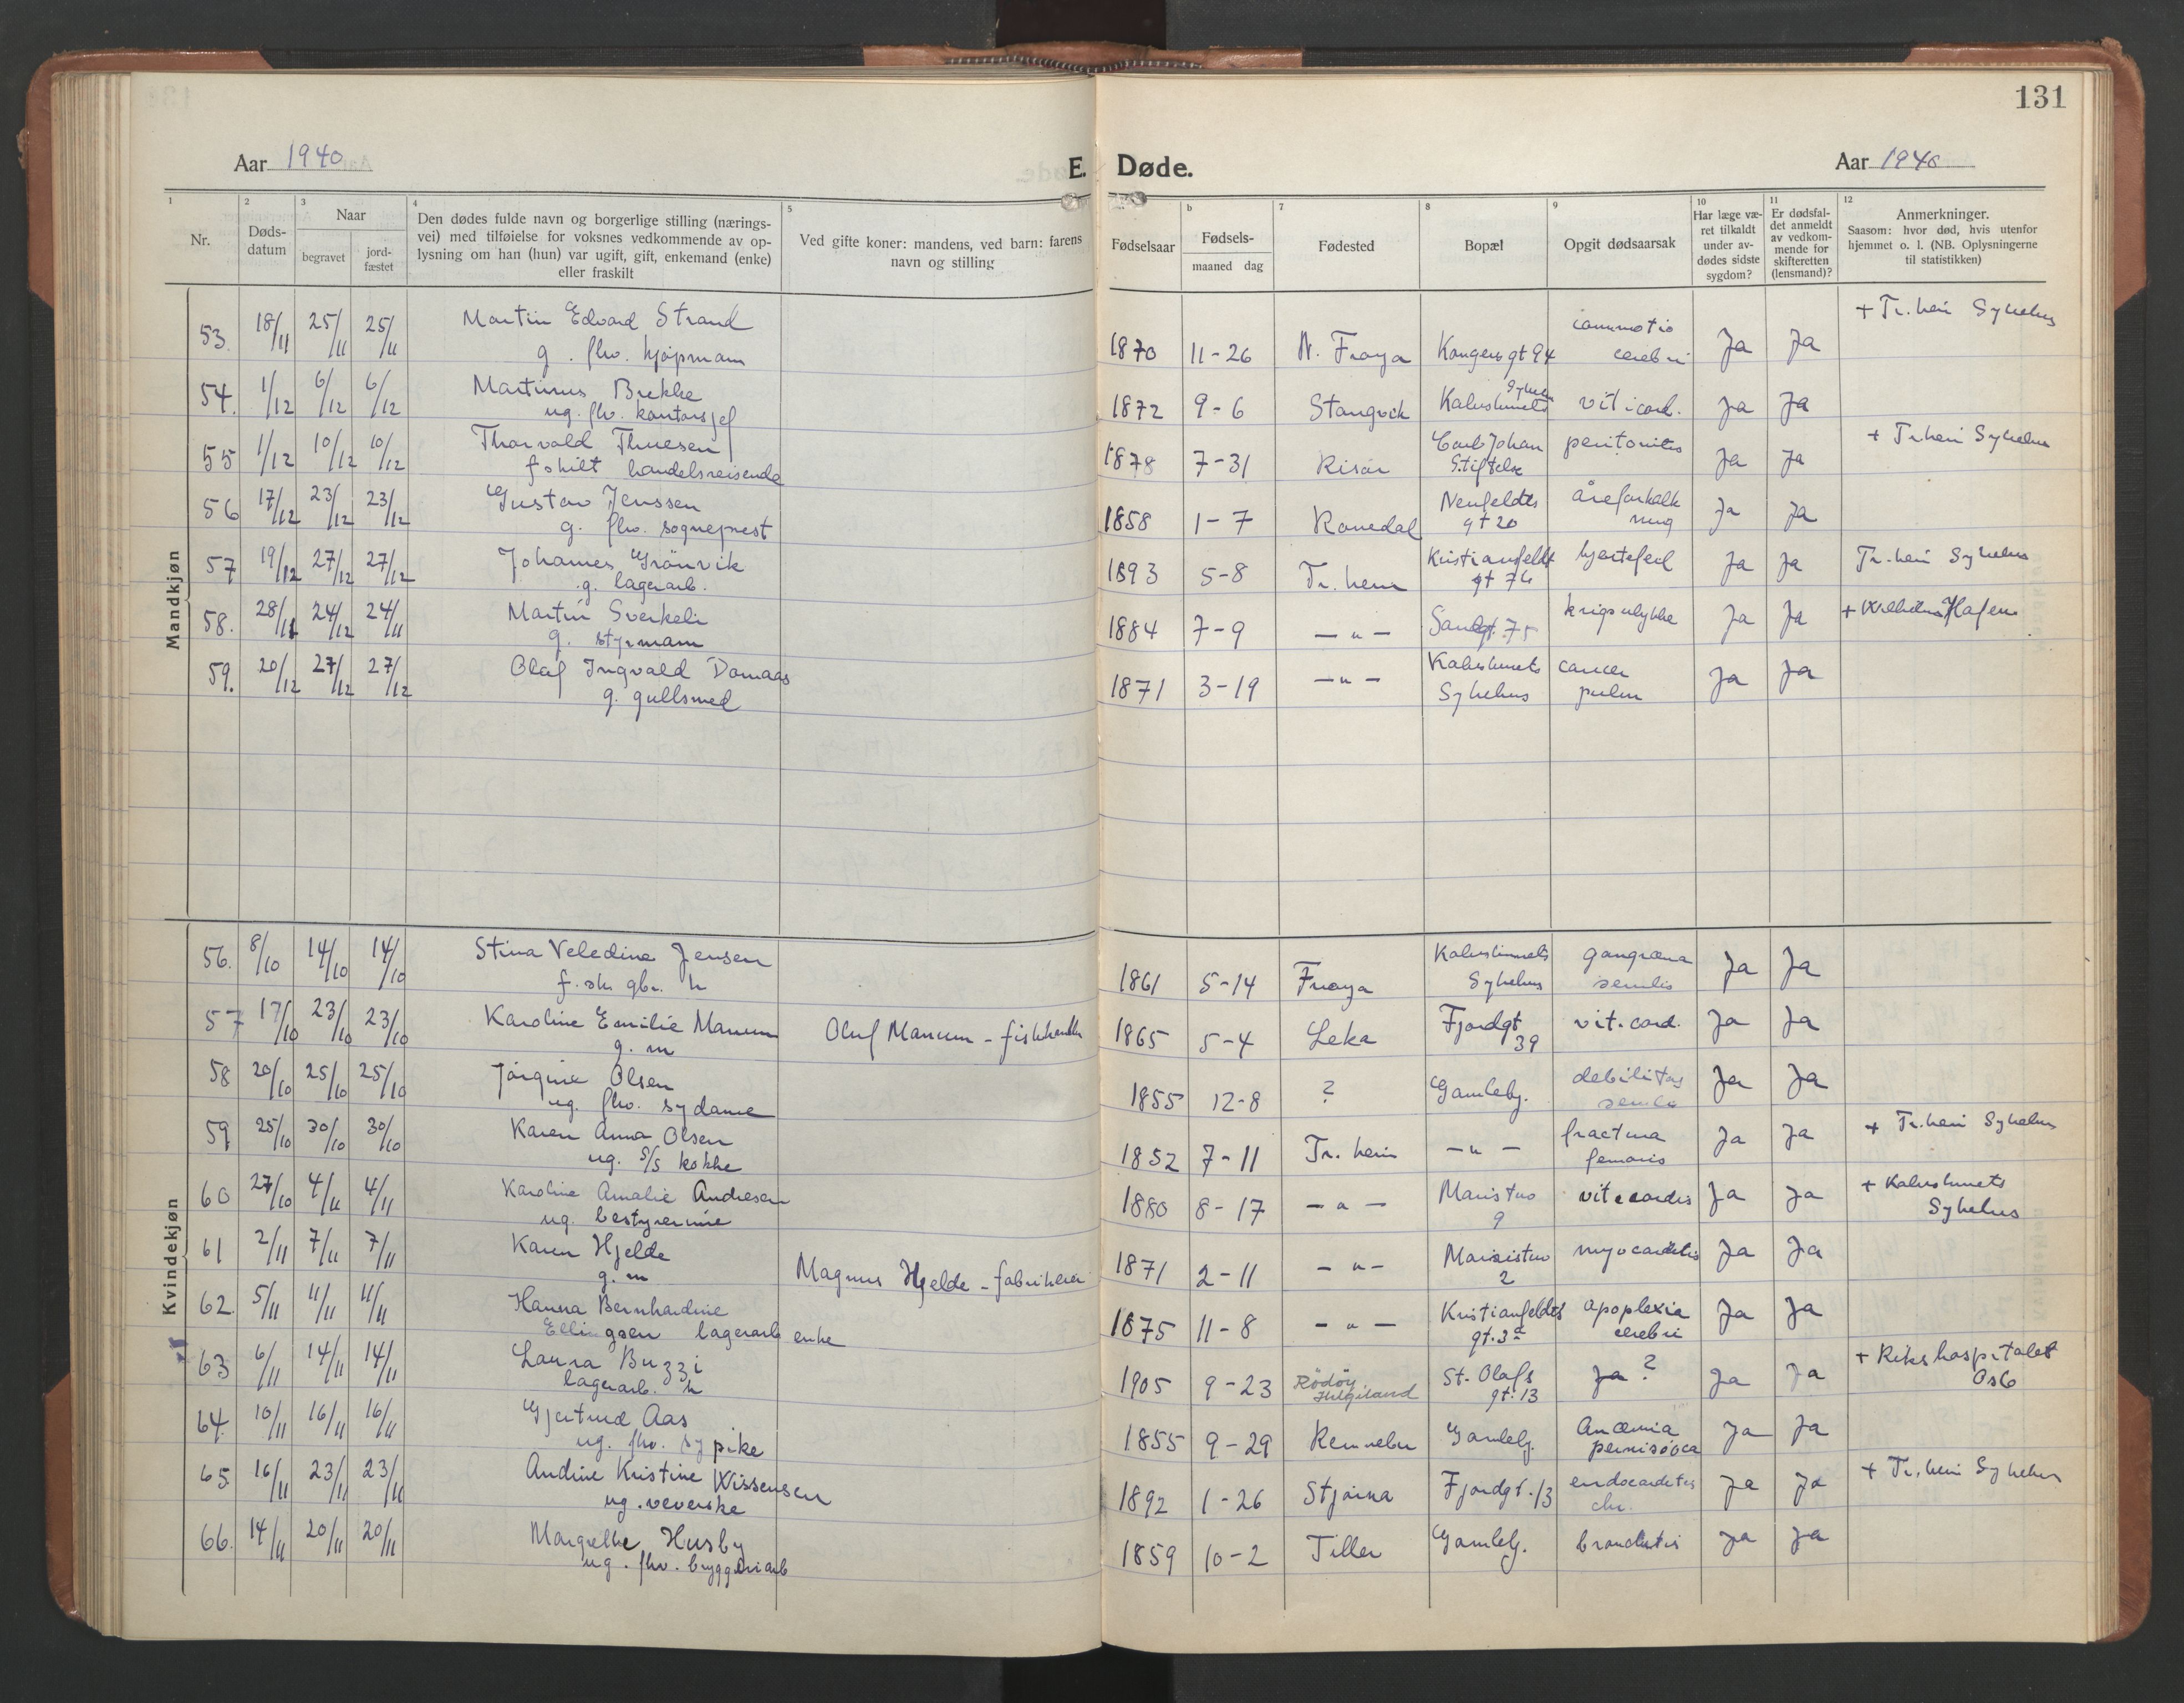 131
Aar 1940
E. Døde.
Aar 1940
1 2 3 4 5 b 7 8 9 10 11 12
Nr.
Døds-
datum
Naar
begravet
jord-
fæstet
Den dødes fulde navn og borgerlige stilling (nærings-
vei) med tilføielse for voksnes vedkommende av op-
lysning om han (hun) var ugift, gift, enkemand (enke)
eller fraskilt
Ved gifte koner: mandens, ved barn: farens
navn og stilling
Fødselsaar
Fødsels-
maaned dag
Fødested
Bopæl
Opgit dødsaarsak
Har læge væ-
ret tilkaldt
under av-
dødes sidste
sygdom?
Er dødsfal-
det anmeldt
av vedkom-
mende for
skifteretten
(lensmand)?
Anmerkninger.
Saasom: hvor død, hvis utenfor
hjemmet o. l. (NB. Oplysningerne
til statistikken)
Mandkjøn
53. 18/11 25/11 25/11 Martin Edvard Strand 1870 11-26 N. Frøya Kongens gt 94 commotio Ja Ja + Tr.heim Sykehus
g. fhv. kjøpmann cerebri
54. 1/12 6/12 6/12 Martinus Brekke 1872 9-6 Stangvik Kalvskinnets Sykehus vit. cord. Ja Ja
ug. fhv. kontorsjef
55 1/12 10/12 10/12 Thorvald Thuesen 1878 7-31 Risør Carl Johan peritonitis Ja Ja + Tr.heim Sykehus
fskilt handelsreisende Stiftelse
56 17/12 23/12 23/12 Gustav Jenssen 1858 1-7 Romedal Neufeldts åreforkalk Ja Ja
g. fhv. sogneprest gt 20 ning
57 19/12 27/12 27/12 Johannes Grönvik 1893 5-8 Tr.heim Kristianfeldt hjertefeil Ja Ja Tr.heim Sykehus
g. lagerarb. gt 76
58. 28/11 24/12 24/11 Martin Sverkeli 1884 7-9 — " — Sandgt. 75 krigsulykke Ja Ja + Wilhelmshafen
g. styrmann
59. 20/12 27/12 27/12 Olaf Ingvald Damaas 1871 3-19 — " — Kalvskinnets cancer Ja Ja
g. gullsmed Sykehus pulm
Kvindekjøn
56. 8/10 14/10 14/10 Stina Veledina Jensen 1861 5-14 Frøya Kalvskinnets gangræna Ja Ja
f. sk. gbr. h Sykehus senilis
57 17/10 23/10 23/10 Karoline Emilie Manum Oluf Manum - fiskehandler 1865 5-4 Leka Fjordgt vit. cord. Ja Ja
g. m 39
58 20/10 25/10 25/10 Jörgine Olsen 1855 12-8 ? Gamleby. debilitas Ja Ja
ug. fhv. sydame senilis
59 25/10 30/10 30/10 Karen Anna Olsen 1852 7-11 Tr.heim — " — fractura Ja Ja + Tr.heim Sykehus
ug. S/S kokke femoris
60 27/10 4/11 4/11 Karoline Amalie Andresen 1880 8-17 — " — Maristuo vit. cordis Ja Ja + Kalvskinnets
ug. bestyrerinne 9 Sykehus
61 2/11 7/11 7/11 Karen Hjelde Magnus Hjelde - fabrikeier 1871 2-11 — " — Maristuo myocarditis Ja Ja
g. m 2
62. 5/11 11/11 11/11 Hanna Bernhardine 1875 11-8 — " — Kristianfeldts apoplexia Ja Ja
Ellingsen lagerarb enke gt. 3a cerebri
63 6/11 14/11 14/11 Laura Buzzi 1905 9-23 Rödöy St. Olafs Ja ? Ja Ja + Rikshospitalet
lagerarb. h Helgeland gt. 13 Oslo
64. 10/11 16/11 16/11 Gjertrud Aas 1855 9-29 Rennebu Gamleby. Anæmia Ja Ja
ug. fhv. sypike pernisiosa
65. 16/11 23/11 23/11 Andine Kristine Nissensen 1892 1-26 Stjørna Fjordgt. 13 endocarditis Ja Ja + Tr.heim Sykehus
ug. veverske chr.
66. 14/11 20/11 20/11 Margrethe Husby 1859 10-2 Tiller Gamleby. bronchitis Ja Ja
ug. fhv. bryggeriarb